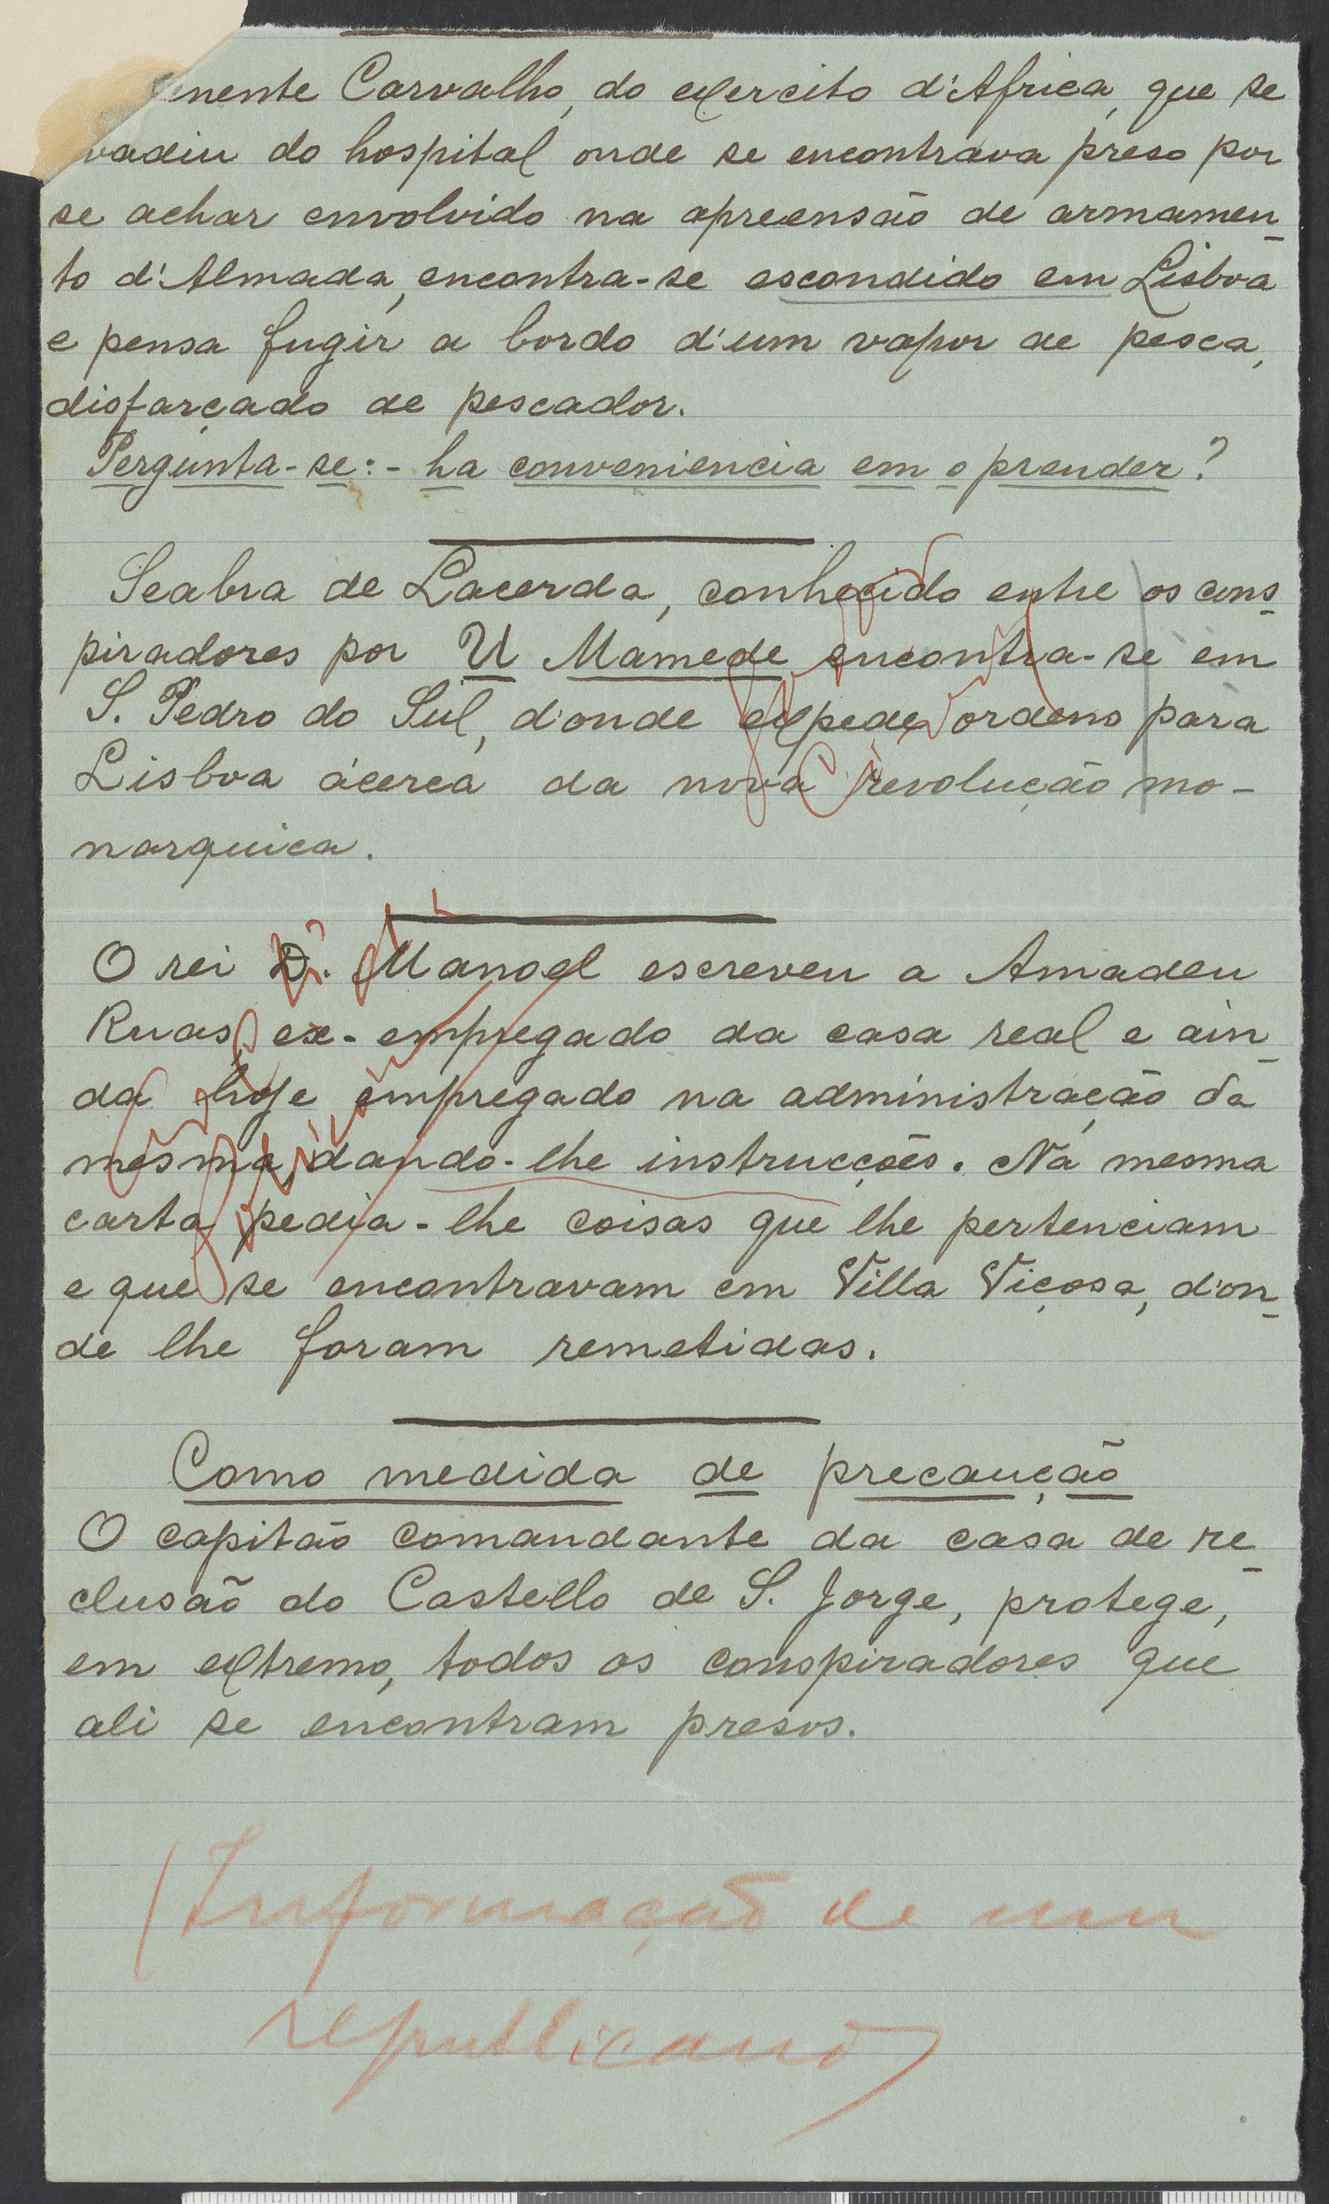 enente Carvalho, do exercito d'Africa, que se
vadiu do hospital onde se encontrava preso por
se achar envolvido na apreensão de armamen-
to d'Almada, encontra-se escondido em Lisboa
e pensa fugir a bordo d'um vapor de pesca,
disfarçado de pescador.
Pergunta-se:- ha conveniencia em o prender?
Seabra de Lacerda, conhecido entre os cons-
piradores por U Mamede encontra-se em
S. Pedro do Sul, d'onde expede ordens para
Lisboa ácerca da nova revolução mo-
narquica.
O rei D. Manoel escreveu a Amadeu
Ruas, ex-empregado da casa real e ain-
da hoje empregado na administração da
mesma, dando-lhe instrucções. Na mesma
carta pedia-lhe coisas que lhe pertenciam
e que se encontravam em Villa Viçosa, d'on-
de lhe foram remetidas.
Como medida de precaução
O capitão comandante da casa de re-
clusão do Castello de S. Jorge, protege,
em extremo, todos os conspiradores que
ali se encontram presos.
(Informação de um
republicano)